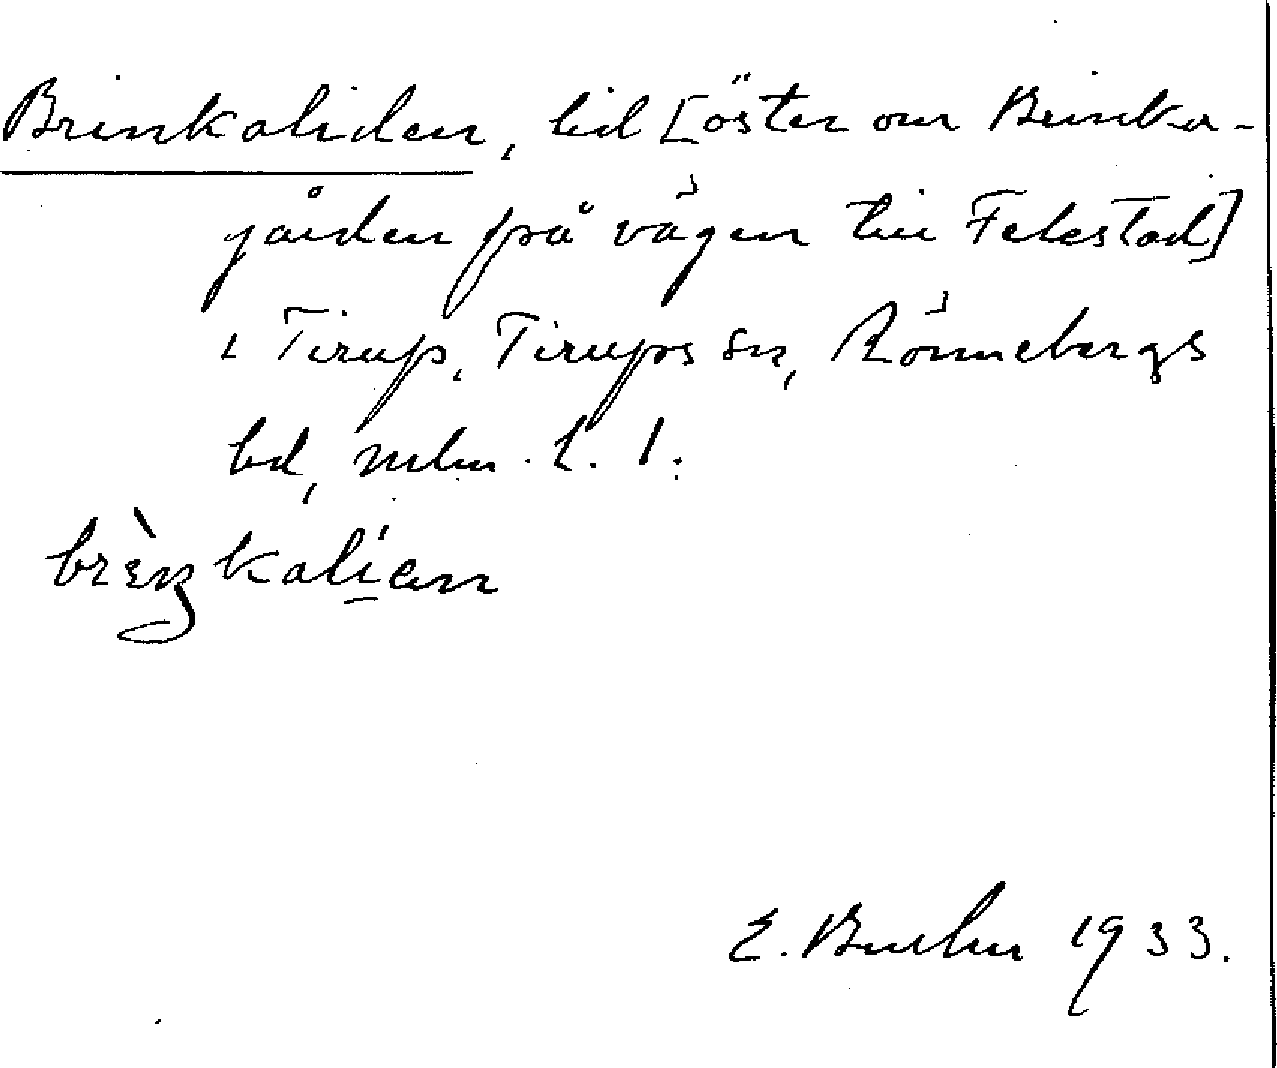 Brinkaliden, lid [öster om Brinka-
gården på vägen till Felestad]
i Tirup, Tirups sn, Rönnebergs
hd, mlm. l. l.
brèŋkalían
E. Bruhn 1933.